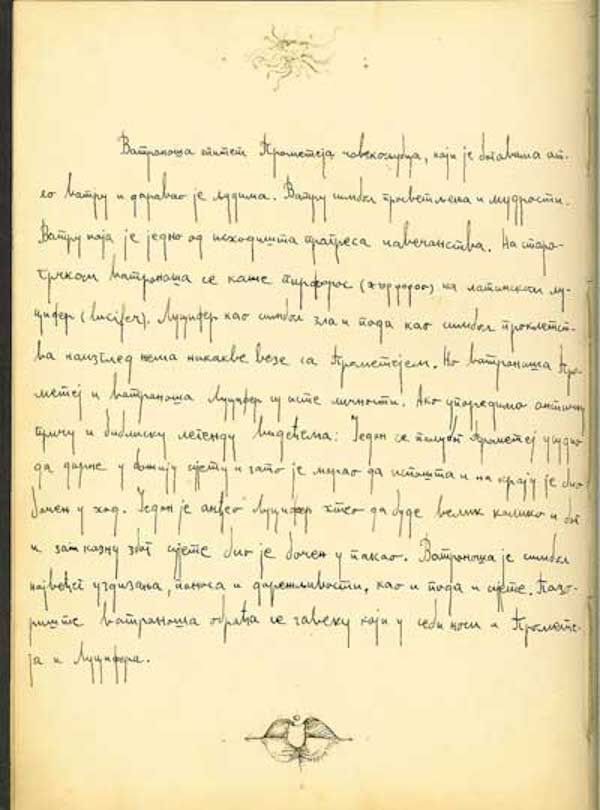 Ватроноша епитет Прометеја човекољубца, који је боговима от-
ео ватру и даровао је људима. Ватру симбол просветљења и мудрости.
Ватру која је једно од исходишта прогреса човечанства. На старо-
грчком ватроноша се каже пирфорос на латинском лу-
цифер (lucifer). Луцифер као симбол зла и пода као симбол проклетст-
ва наизглед нема никакве везе са Прометејем. Но ватроноша Про-
метеј и ватроноша Луцифер су исте личности. Ако упоредимо античку
причу и библиску легенду видећемо: Један се полубог Прометеј усудио
да дарне у божију сујету и зато је морао да испашта и на крају је био
бачен у ход. Један је анђео Луцифер хтео да буде велик колико и бог
и за казну због сујете био је бачен у пакао. Ватроноша је симбол
највећег уздизања, поноса и дарежљивости, као и пода и сујете. Позо-
риште ватроноша обраћа се човеку који у себи носи и Промете-
ја и Луцифера.